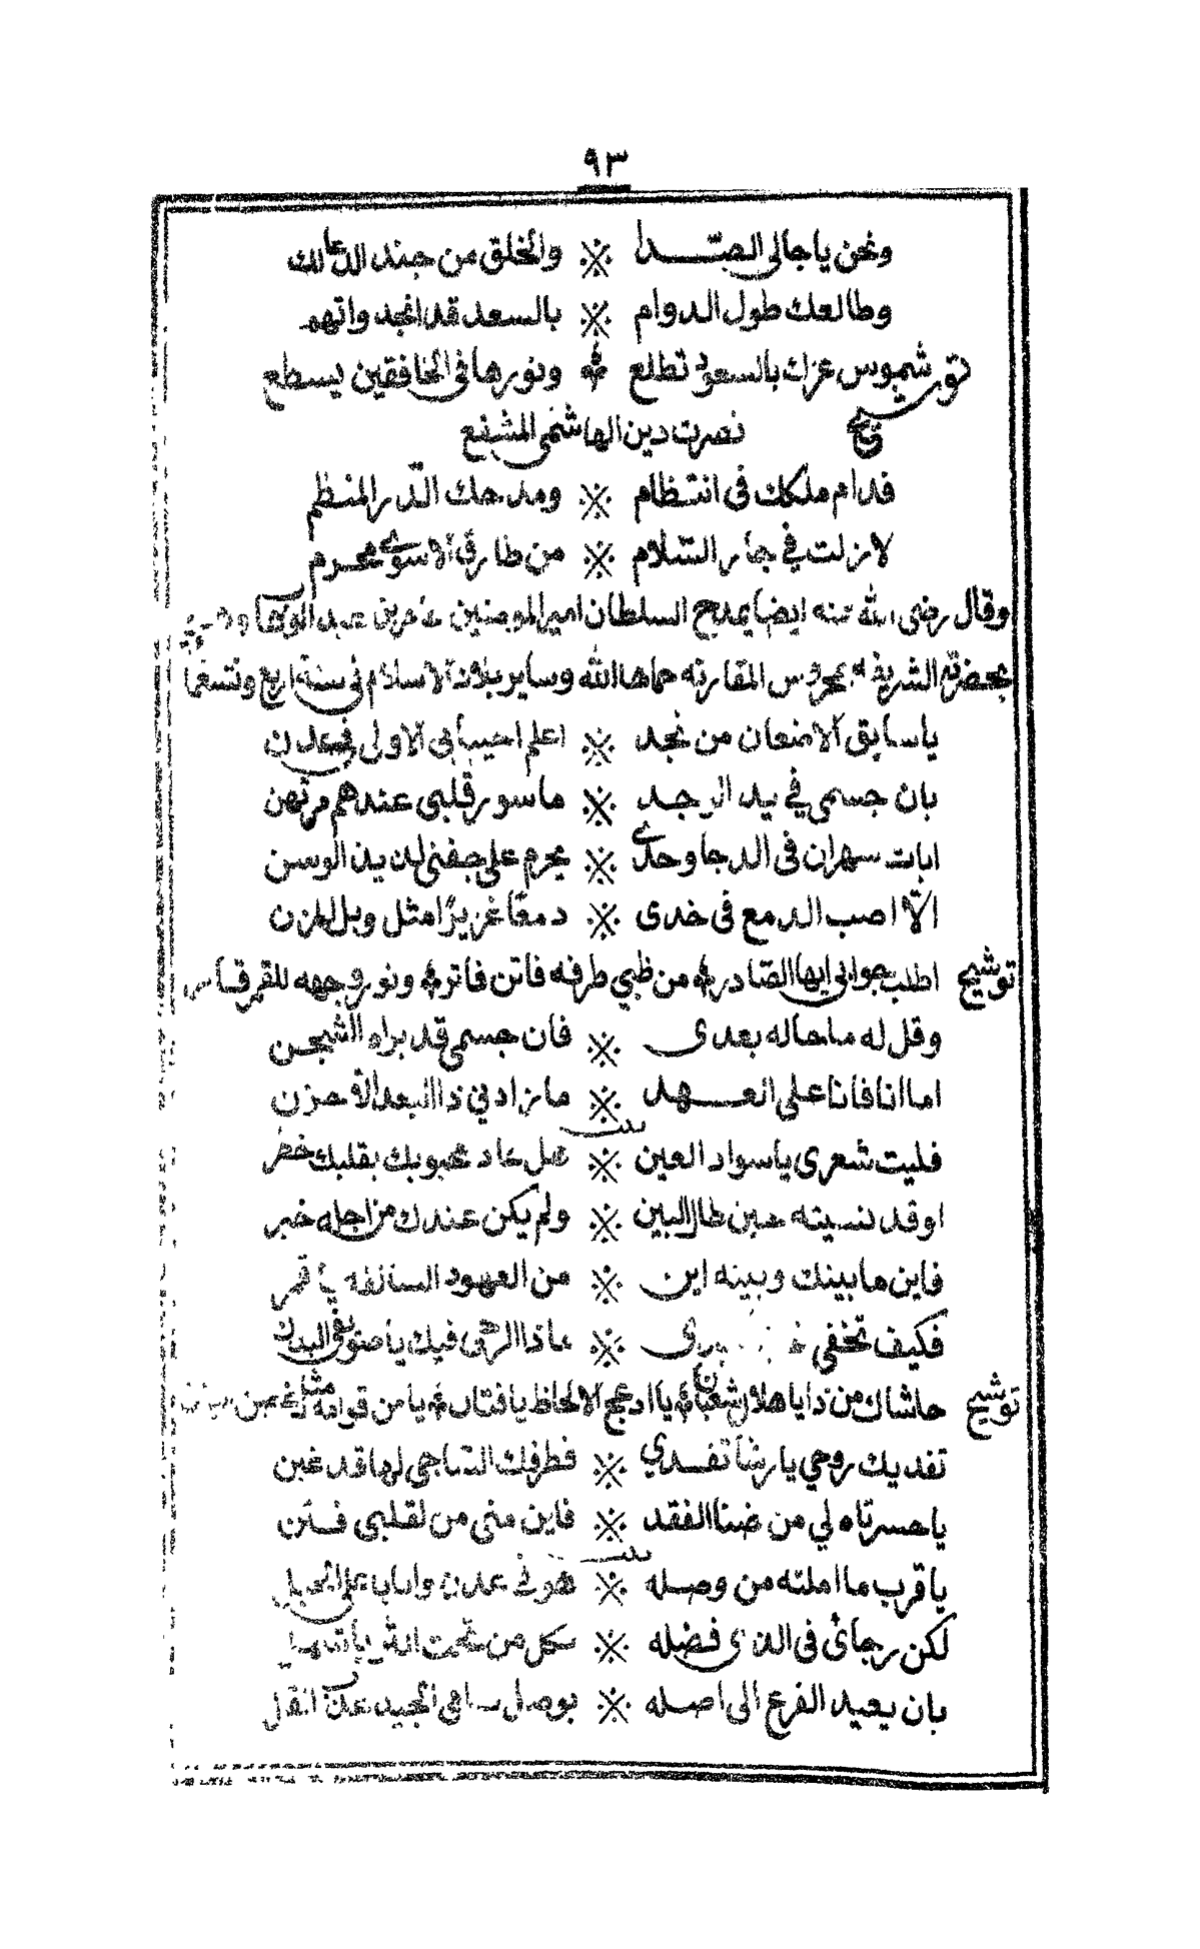 ٩٣
ونحن يا جالى الصدا ※ والخلق من جند الدعا لك
وطالعك طول الدوام ※ بالسعد قد انجد واتهم
توشيح شموس عزك بالسعود تطلع ※ ونورها فى الخافقين يسطع
نصرت دين الهاشمى المشفع
فدام ملكك فى انتظام ※ ومدحك الدر المنظم
لا زلت في جار السلام ※ من طارق الاسوى محرم
وقال رضى الله عنه ايضا يمدح السلطان امير المومنين عامر بن عبد الوهاب
بحضرته الشريفه بمحروس المقارنه حماها الله وساير بلاد الاسلام فى سنة اربع وتسعما
يا سايق الاضعان من نجد ※ اعلم احيبابى الاولى فى عدن
بان جسمى في يد الوجد ※ ماسور قلبى عندهم مرتهن
ابات سهران فى الدجا وحدى ※ محرم على جفنى لذيذ الوسن
الا اصب الدمع فى خدى ※ دمعًا غزيرًا مثل وبل المزن
توشيح اطلب جوابى ايها الصادر ※ من ظبي طرفه فاتن فاتر ※ ونور وجهه للقمر قاسر
وقل له ما حاله بعدى ※ فان جسمى قد براه الشجن
اما انا فانا على العهد ※ ما زادني ذا البعد الا حزن
بيت
فليت شعرى يا سواد العين ※ هل عاد محبوبك بقلبك خطر
او قد نسيته حين طال البين ※ ولم يكن عندك من اجله خبر
فاين ما بينك وبينه اين ※ من العهود السالفه يا قمر
فكيف تخفي ※ ماذا الرهى فيك يا ضوى فى البدن
توشيح حاشاك من ذا يا هلال شعبان ※ يا ادعج الالحاظ يا فتان ※ يا من قوامه مثل غصن
تفديك روحي يا رشا تفدي ※ فطرفك الساجي لها قد غبن
يا حسرتاه لي من ضنا الفقد ※ فاين منى من لقلبى فتن
بيت
يا قرب ما املته من وصله ※ هو فى عدن وانا با على الجبل
لكن رجائى فى الذى فضله ※ لكل من تحت
بان يعيد الفرع الى اصله ※ بوصل سامى الجيد عذب القبل